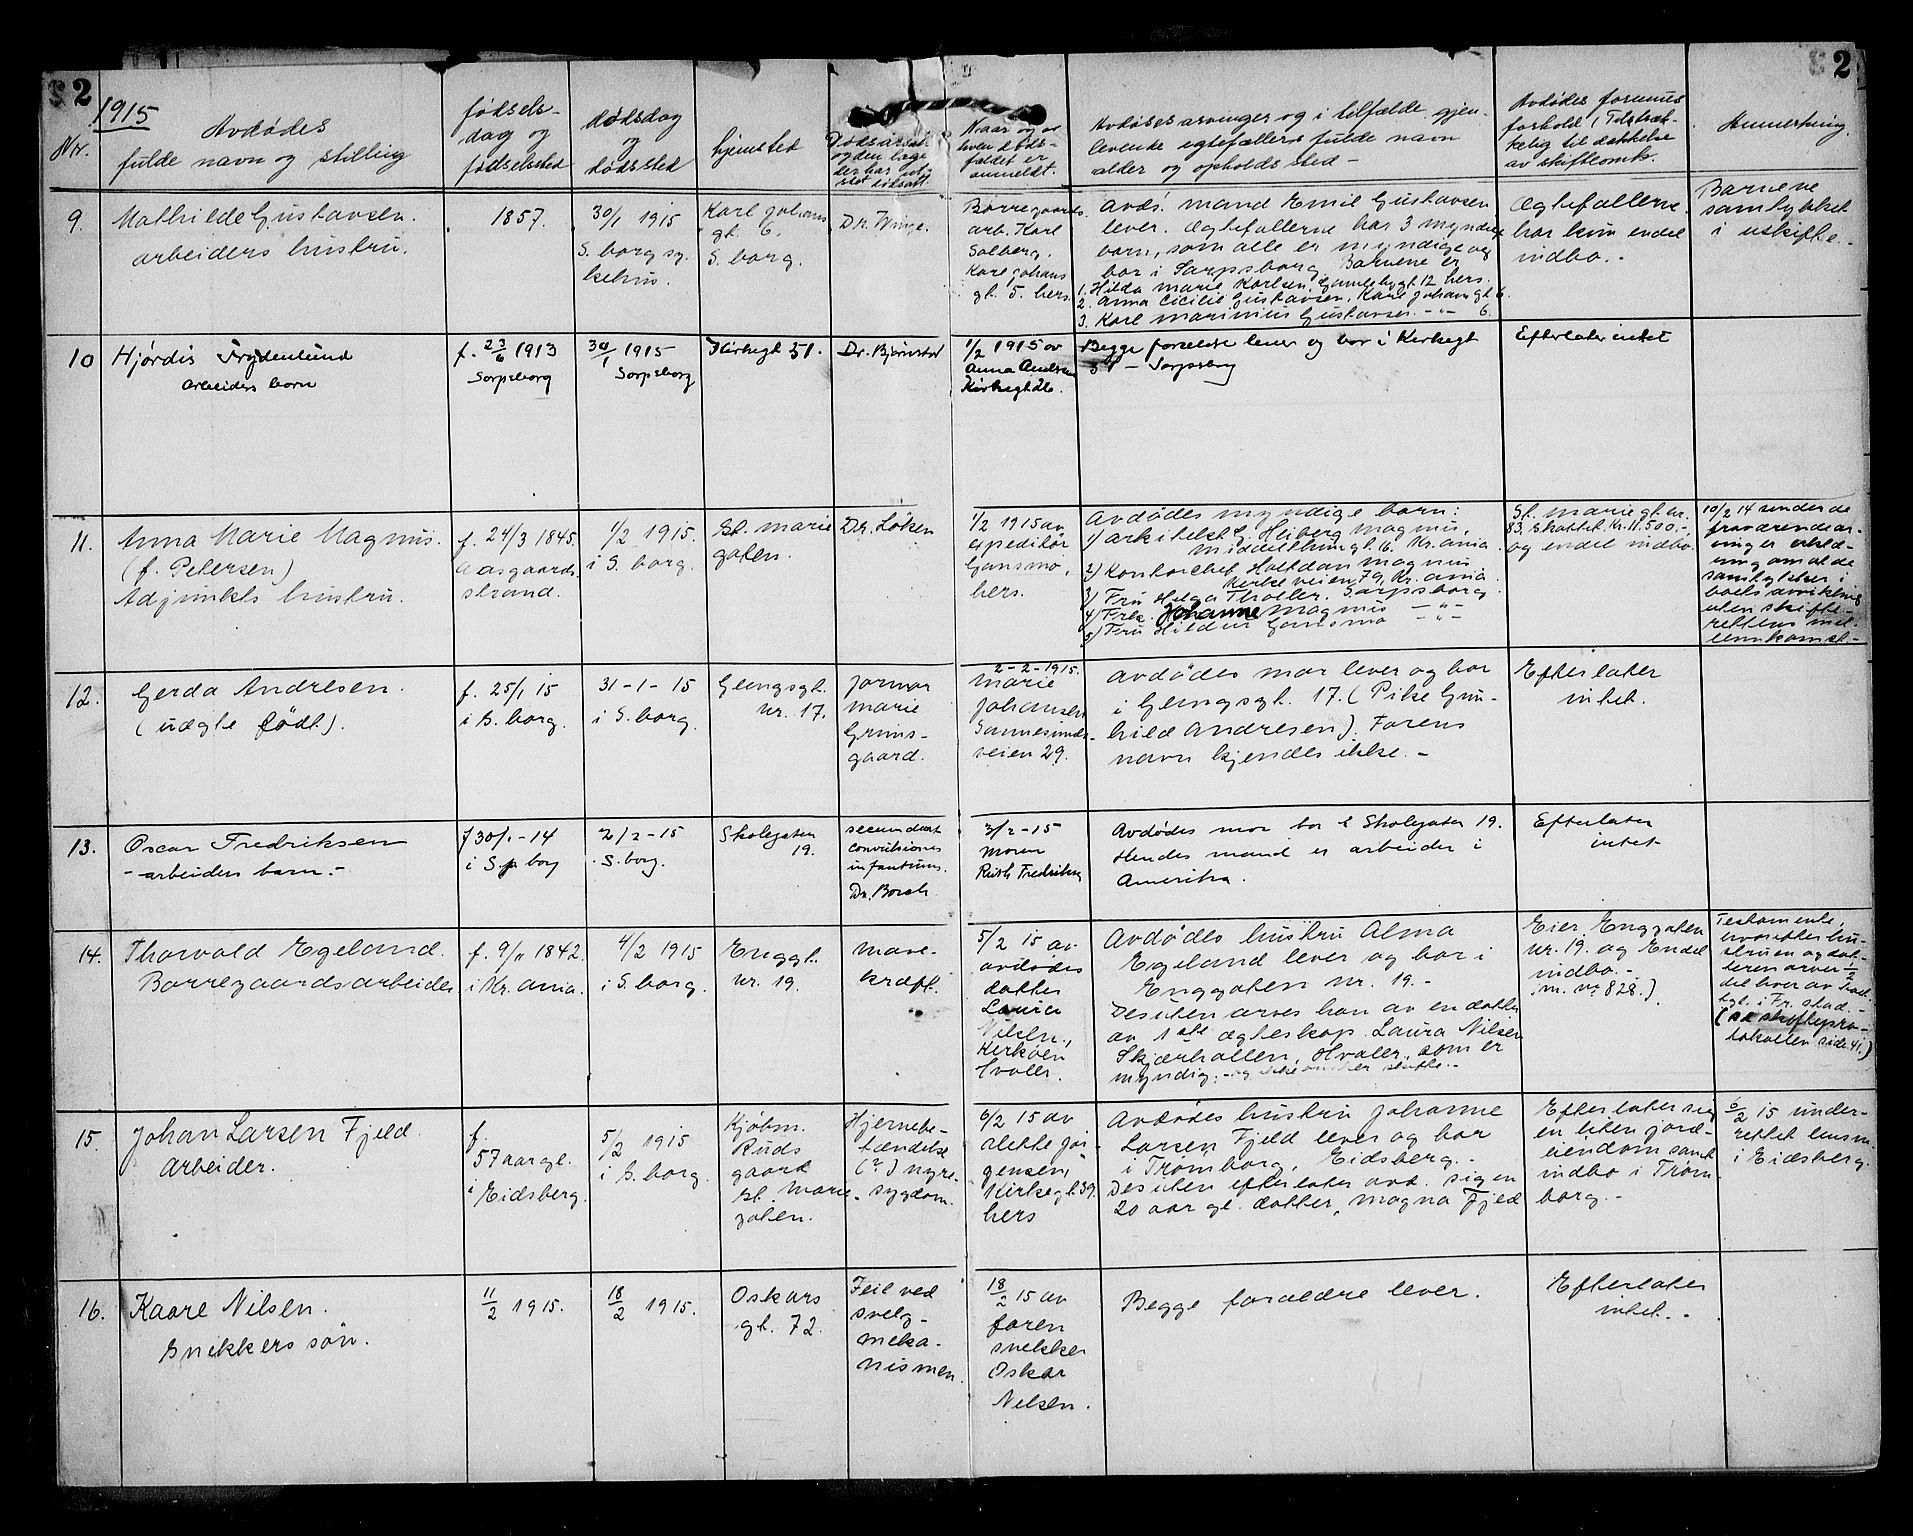 2
2
1915
Nr.
Avdødes
fulde navn og stilling
fødsels-
dag og
fødselssted
dødsdag
og
dødssted
hjemsted
Dødsårsak
og den læge
der har ut-
stet
Naar og av
hvem døds-
faldet er
anmeldt.
Avdødes arvinger og i tilfælde gjen-
levende egtefællers fulde navn
alder og opholdssted –
Avdødes formues
forhold (Tilstræk-
kelig til dækkelse
av skifteomk.
Anmerkning.
9.
Mathilde Gustavsen.
arbeiders hustru.
1857.
30/1 1915
S. borg sy-
kehus.
Karl Johans
gt. 6.
S. borg.
Dr. Winge.
Borregaards.
arb. Karl
Solberg.
Karl Johans
gt. 5. hers.
Avds. mand Emil Gustavsen
lever. Ægtefællerne har 3 myndige
born, som alle er myndige og
bor i Sarpsborg. Barnene er
1. Hilda Marie Karlsen, Gamlebygt. 12 hers.
2. Anna Cicilie Gustavsen, Karl Johans gt. 6.
3. Karl Marinius Gustavsen. –"– 6.
Ægtefællerne
har kun endel
indbo. –
Barnene
samtykket
i uskifte. –
10
Hjørdis Frydenlund
arbeiders barn
f. 23/6 1913
Sarpsborg
30/1 1915
Sarpsborg
Kirkegt 51.
Dr. Bjørnstad
1/2 1915 av
Anna Andersen
Kirkegt 26.
Begge forældre lever og bor i Kirkegt
51 – Sarpsborg
Efterlater intet
11.
Anna Marie Magnus.
(f. Petersen)
Adjunkts hustru.
f. 24/3 1845.
Aasgaard-
strand.
1/2 1915.
i S. borg.
St. Marie
gaten.
Dr. Løken
1/2 1915 av
expeditør
Gansmo,
hers.
Avdødes myndige børn:
1) Arkitekt G. Heiberg Magnus,
Middelthungt. 16. Kr.ania.
2) Kontorchef Halfdan Magnus
Kirkeveien 79, Kr. ania.
3) Fru Helga Thaller. Sarpsborg
4) Frk. Johanne Magnus –"–
5) Fru Hildur Gansmo –"–
St. Marie gt. nr.
83. Skattet. Kr. 11.500.–
og endel indbo.
10/2 14 sendes de
fraværende ar-
vinger erklæ-
ring om at de
samtykker i
boets avvikling
uten skifte-
rettens mel-
lemkomst –
12.
Gerda Andresen.
(uægte født).
f. 25/1 15
i S. borg.
31 - 1 - 15
i S. borg.
Glengsgt.
nr. 17.
Jormor
Marie
Grims-
gaard.
2 - 2 - 1915.
Marie
Johansen
Sannesunds-
veien 29.
Avdødes mor lever og bor
i Glengsgt. 17. (Pike Gun-
hild Andresen). Farens
navn kjendes ikke. –
Efterlater
intet.
13.
Oscar Fredriksen
– arbeiders barn. –
f 30/1 - 14
i S.p borg
2/2 - 15
S. borg.
Skolegaten
19.
convulsiones
infantum.
Dr. Borch.
3/2 - 15
Moren
Ruth Fredriksen
Avdødes mor bor i Skolegaten 19.
Hendes mand er arbeider i
Amerika.
Efterlater
intet
14.
Thorvald Egeland.
Borregaardsarbeider
f. 9/11 1842.
i Kr. ania.
4/2 1915
i S. borg.
Enggt.
nr. 19.
Mave-
kræft.
5/2 15 av
avdødes
datter
Laura
Nilsen,
Kirkøen
Hvaler.
Avdødes hustru Alma
Egeland lever og bor i
Enggaten nr. 19. –
Desuten arves han av en datter
av 1ste ægteskap. Laura Nilsen
Skjærhallen, Hvaler, som er
myndig; – og ikke ønsker skifte. –
Eier Enggaten
nr. 19. og Endel
indbo. –
(m. nr 828.)
Testamente,
hvorefter hu-
struen og dat-
teren arver 1/2
del hver av
tgl. i Fr. stad. –
(se skiftepro-
tokollen side 41.)
15.
Johan Larsen Fjeld.
Arbeider.
f.
57 aar gl.
i Eidsberg.
5/2 1915
i S. borg.
Kjøbm.
Ruds
gaard
St. Marie-
gaten.
Hjernebe-
tændelse
(?) nyre-
sygdom.
6/2 15 av
Alette Jør-
gensen,
Kirkegt. 39.
hers
Avdødes hustru Johanne
Larsen Fjeld lever og bor
i Trømborg, Eidsberg. –
Desuten efterlater avd. sig en
20 aar gl. datter, Magna Fjeld
Efterlater sig
en liten jord-
eiendom samt
indbo i Trøm-
borg. –
6/2 15 under-
rettet lensm.
i Eidsberg.
16.
Kaare Nilsen.
Snekkers søn.
11/2 1915.
18/2 1915.
Oskars
gt. 72.
Feil ved
svelg-
meka-
nismen.
18/2 15 av
faren
snekker
Oskar
Nilsen.
Begge forældre lever.
Efterlater
intet. –